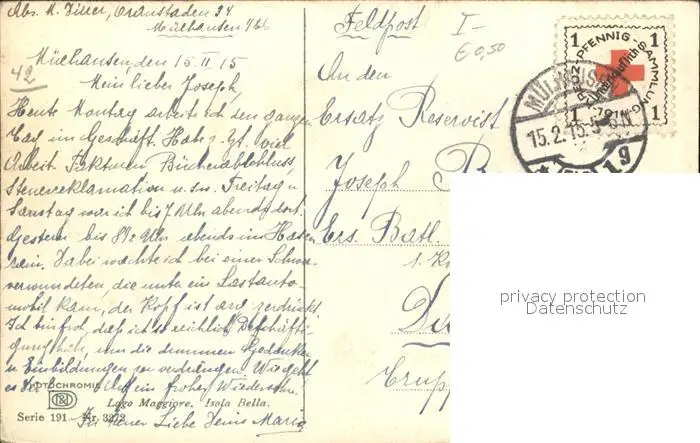 Abs. M. Ziller, Oranstaden 34
Mülhausen i/Els
Mülhausen, den 15. II 15
Mein lieber Joseph,
Heute Montag arbeite ich den ganzen
Tag im Geschäft. Habe z. Zt. viel
Arbeit Fakturen Bücherabschluss,
Steuerreklamation u. s. w. Freitag u
Samstag war ich bis 7 Uhr abends dort.
Gestern bis 8½ Uhr abends im Hasen
rain. Dabei wachte ich bei einem Schwer
verwundeten die unter ein Lastauto-
mobil kam, der Kopf ist arg zerdrückt.
Ich bin froh, daß ich so reichlich Beschäfti-
gung habe, um die dummen Gedanken
u Einbildungen zu verdrängen. Wie geht
es Dir? Auf ein frohes Wiedersehn
In treuer Liebe Deine Marie
PHOTOCHROMIE
Lago Maggiore. Isola Bella.
Serie 191. Nr. 3272
42
Feldpost
I-
€ 0,50
An den
Ersatz Reservist
Joseph
Ers. Batl.
1. K
Trupp
1 PFENNIG-SAMMLUNG 1
1 1
15.2.15.
privacy protection
Datenschutz